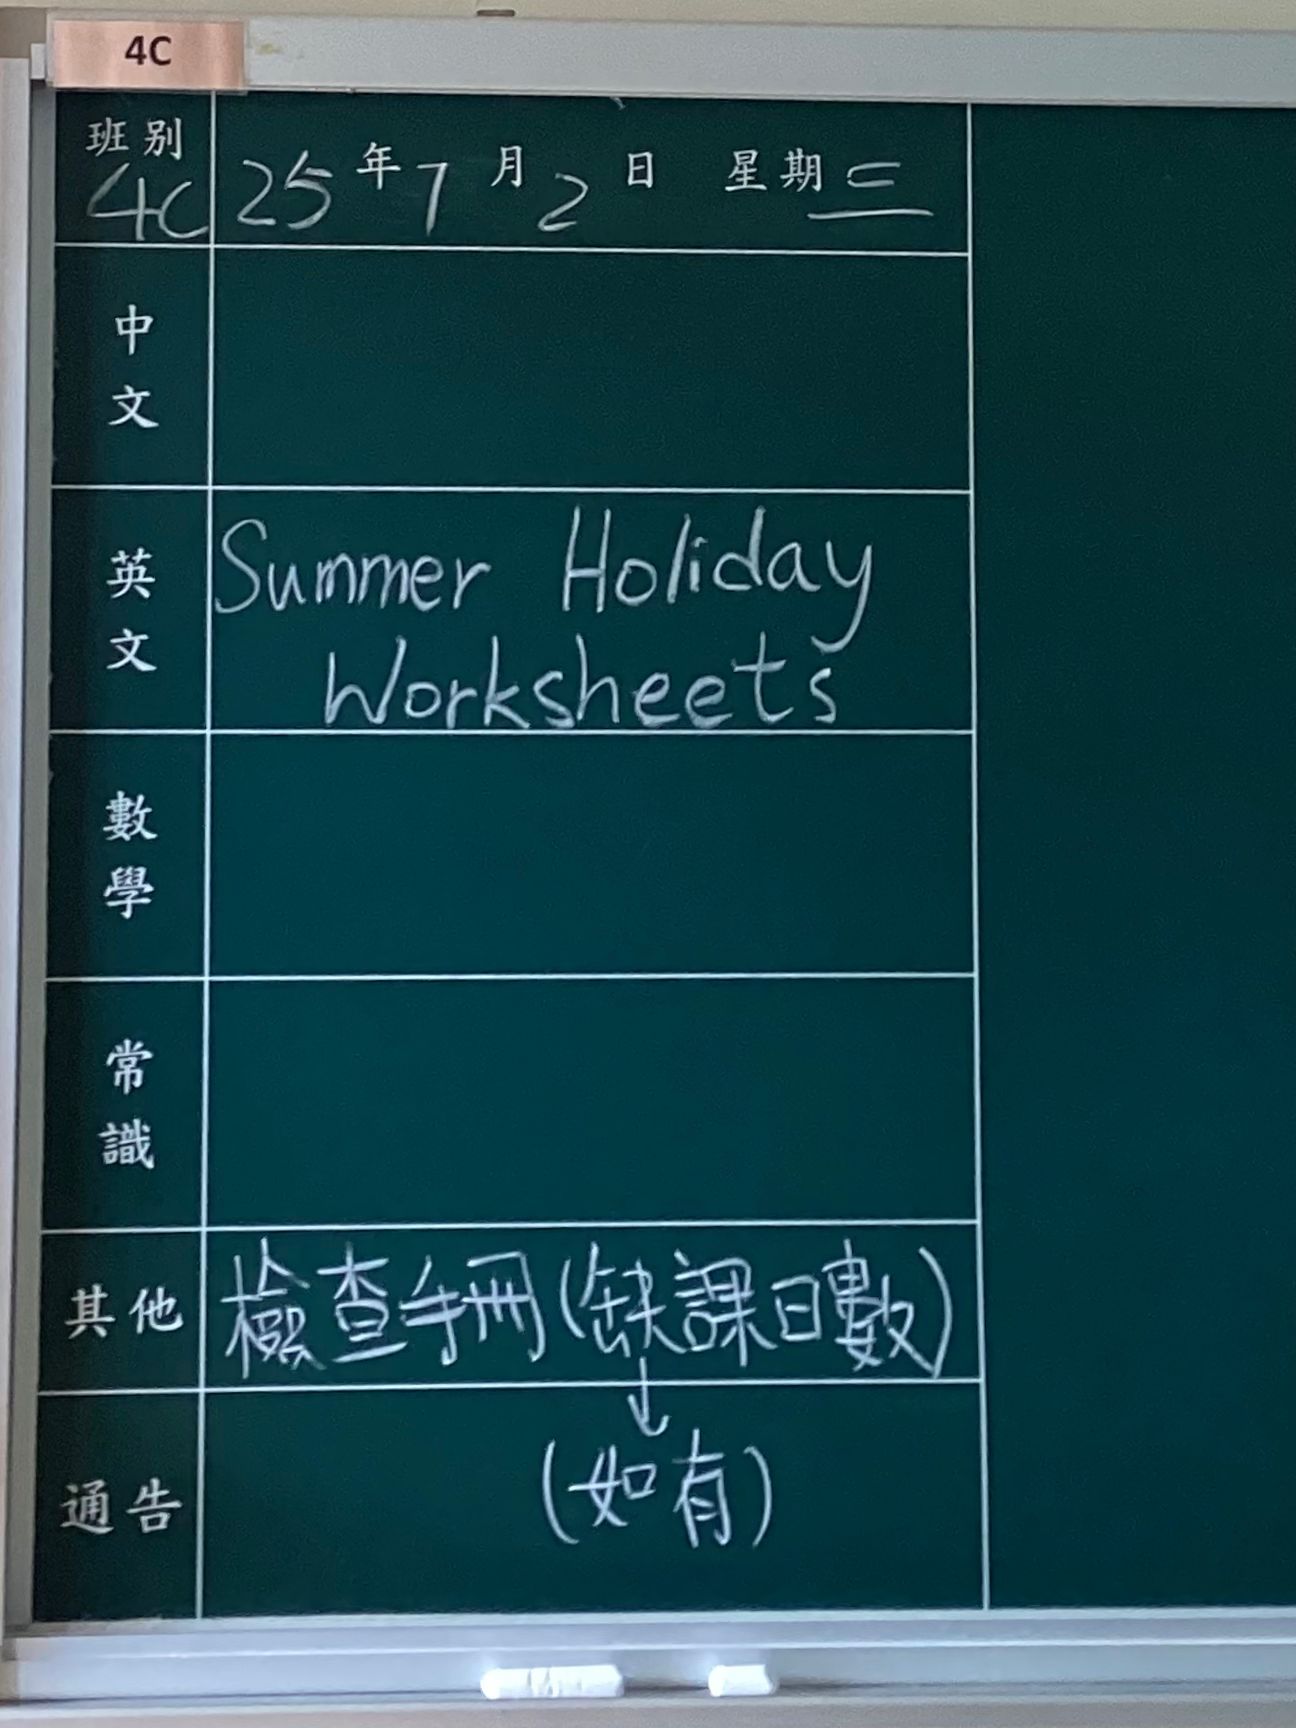 4C
班別 25年7月2日 星期三
4C
中文
英文 Summer Holiday
Worksheets
數學
常識
其他 檢查手冊(缺課日數)
↓
通告 (如有)